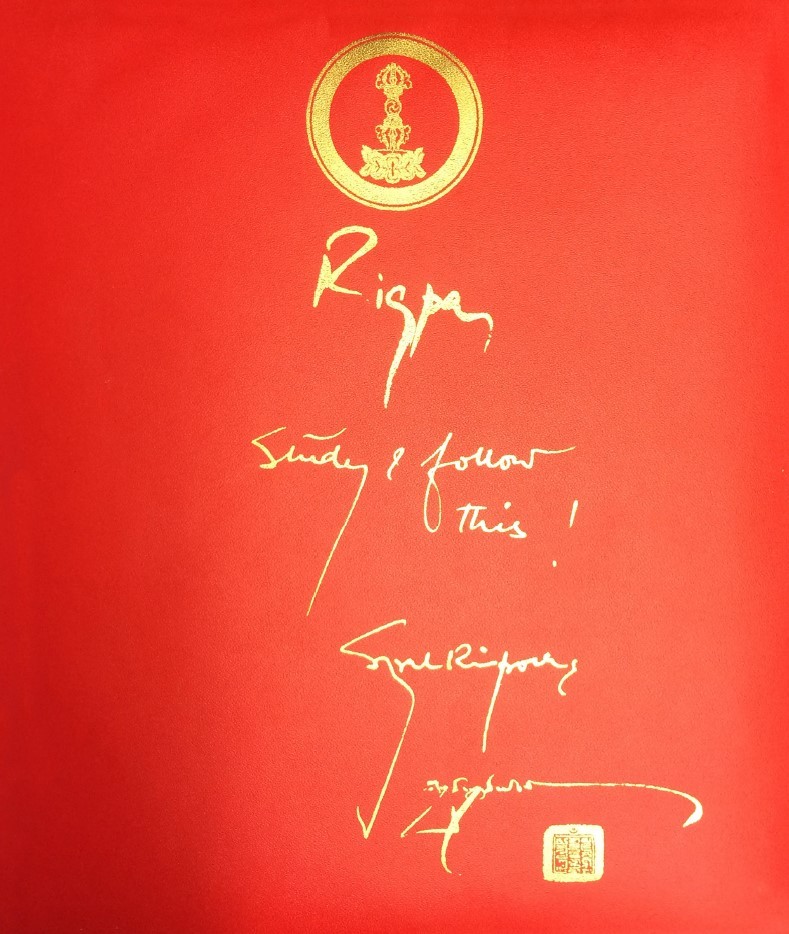 Rigpa,
Study & follow
this!
Sogyal Rinpoche